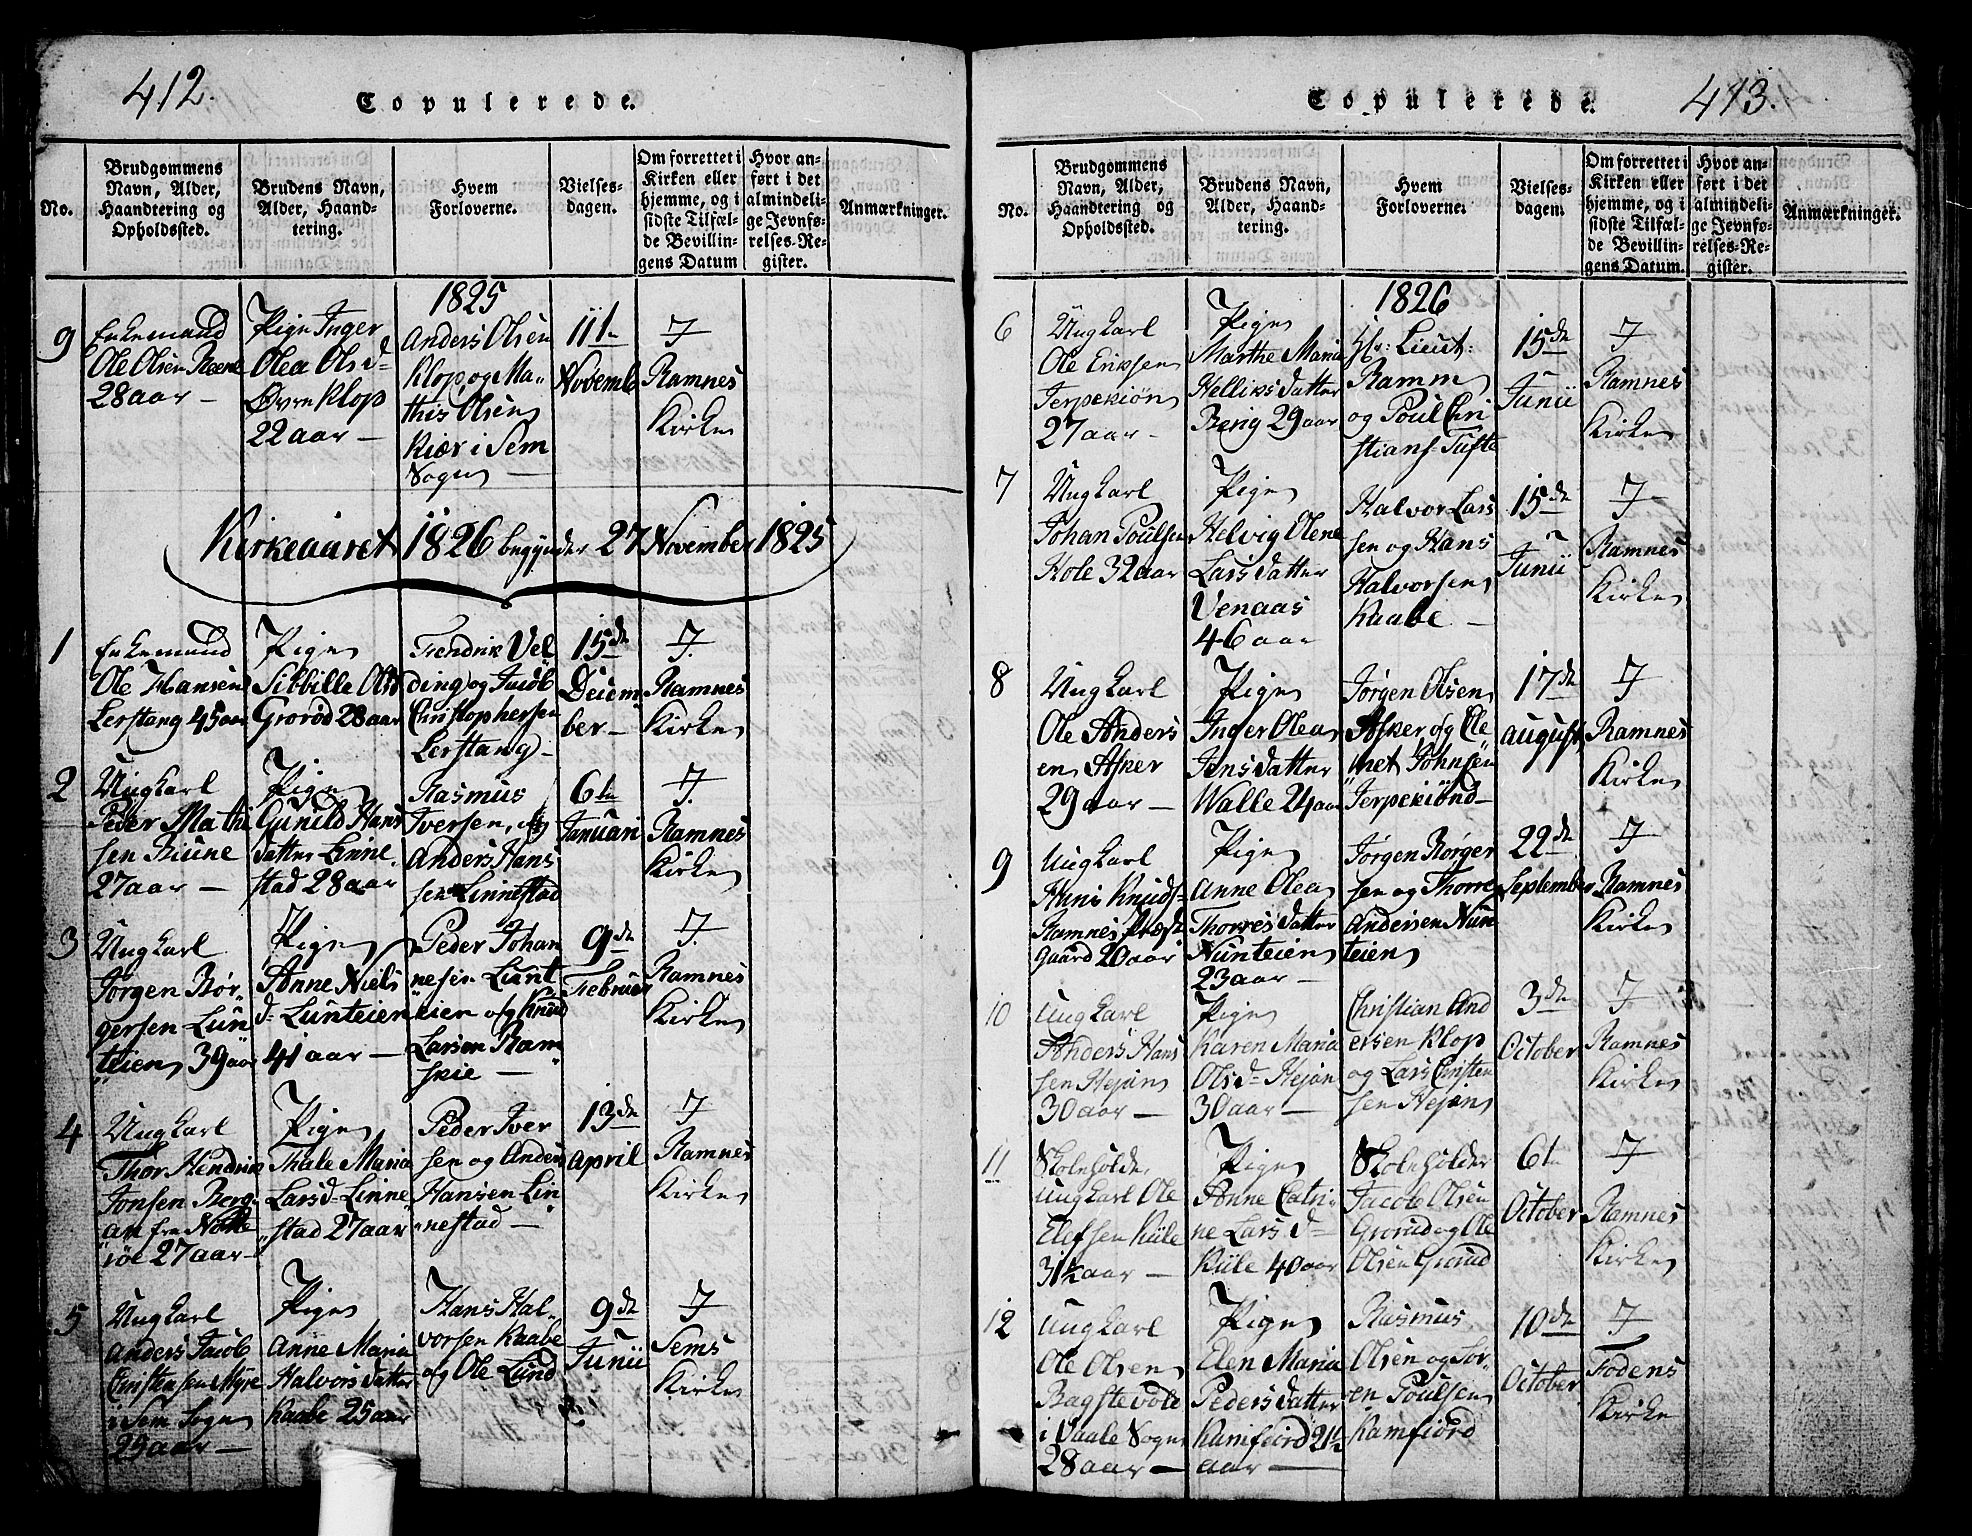 412.
Copulerede.
No.
Brudgommens
Navn, Alder,
Haandtering og
Opholdssted.
Brudens Navn,
Alder, Haand-
tering.
Hvem
Forloverne.
Vielses-
dagen.
Om forrettet i
Kirken eller
hjemme, og i
sidste Tilfæl-
de Bevillin-
gens Datum
Hvor an-
ført i det
almindeli-
ge Jevnfø-
relses-Re-
gister.
Anmærkninger.
9
Enkemand
Ole Olsen
28 aar
Pige Inger
Olea Olsd
Øvre Klop
22 aar
1825
Anders Olsen
Klop og Ma-
this Olsen
Kiær i Sem
Sogn
11te
Novembr
I
Ramnes
Kirke
Kirkeaaret 1826 begynder 27 November 1825
1
Enkemand
Ole Hansen
Lerstang 45 aar
Pige
Sibbille Olsd
Grorød 28 aar
Fredrik Vel
ding og Jacob
Christophersen
Lerstang
15de
Decem
ber
I
Ramnes
Kirke
2
Ungkarl
Peder Mathi
sen
27 aar
Pige
Gunild Hans
datter Linne
stad 28 aar
Rasmus
Iversen, og
Anders Hans
sen Linnestad
6te
Januari
I
Ramnes
Kirke
3
Ungkarl
Jørgen Bør-
gersen Lun
teien 39 aar
Pige
Anne Niels
d Lunteien
41 aar
Peder Johan
nesen Lunt
eien og Knud
Larsen Ram
skie
9de
Februar
I
Ramnes
Kirke
4
Ungkarl
Thor Hendrik
Jonsen Berg
an fra Nøtte
røe 27 aar
Pige
Thale Maria
Larsd Linne
stad 27 aar
Peder Iver
sen og Anders
Hansen Lin
nestad
13de
April
I
Ramnes
Kirke
5
Ungkarl
Anders Jacob
Christensen Myre
i Sem Sogn
29 aar
Pige
Anne Maria
Halvorsdatter
Raabe 25 aar
Hans Hal-
vorsen Raabe
og Ole Lund
9de
Junii
I
Sems
Kirke
413.
Copulerede.
No.
Brudgommens
Navn, Alder,
Haandtering og
Opholdssted.
Brudens Navn,
Alder, Haand-
tering.
Hvem
Forloverne.
Vielses-
dagen.
Om forrettet i
Kirken eller
hjemme, og i
sidste Tilfæl-
de Bevillin-
gens Datum.
Hvor an-
ført i det
almindeli-
ge Jevnfø-
relses-Re-
gister.
Anmærkninger.
6
Ungkarl
Ole Eriksen
Jerpekiøn
27 aar
Pige
Marthe Maria
Helliksdatter
Berig 29 aar
1826
Hr: Lieut:
Ramm
og Poul Cri
stians Tufte
15de
Junii
I
Ramnes
Kirke
7
Ungkarl
Johan Poulsen
Hole 32 aar
Pige
Helvig Olene
Larsdatter
Venaas
46 aar
Halvor Lars
sen og Hans
Halvorsen
Raabe
15de
Junii
I
Ramnes
Kirke
8
Ungkarl
Ole Anders
en Asker
29 aar
Pige
Inger Olea
Jensdatter
Walle 24 aar
Jørgen Olsen
Asker og Ole
Johnsen
Jerpekiønd
17de
august
I
Ramnes
Kirke
9
Ungkarl
Hans Knuds
Ramnes Præst
gaard 20 aar
Pige
Anne Olea
Thorresdatter
Nunteien
23 aar
Jørgen Børger
sen og Thorre
Andersen Nun
teien
22de
September
I
Ramnes
Kirke
10
Ungkarl
Anders Hans
sen Hejan
30 aar
Pige
Karen Maria
Olsd Hejan
30 aar
Christian And
ersen Klop
og Lars Cristen
sen Hejan
3de
October
I
Ramnes
Kirke
11
Skoleholder
Ungkarl Ole
Elefsen Kiile
31½ aar
Pige
Anne Catri-
ne Lars d
Kiile 40 aar
Skoleholder
Jacob Olsen
Grorud og Ole
Olsen Grorud
6te
October
I
Ramnes
Kirke
12
Ungkarl
Ole Olsen
Bagstevold
i Vaale Sogn
28 aar
Pige
Elen Maria
Pedersdatter
Kamfiord 21½
aar
Rasmus
Olsen og Sør-
en Poulsen
Kamfiord
10de
October
I
Fodens
Kirke